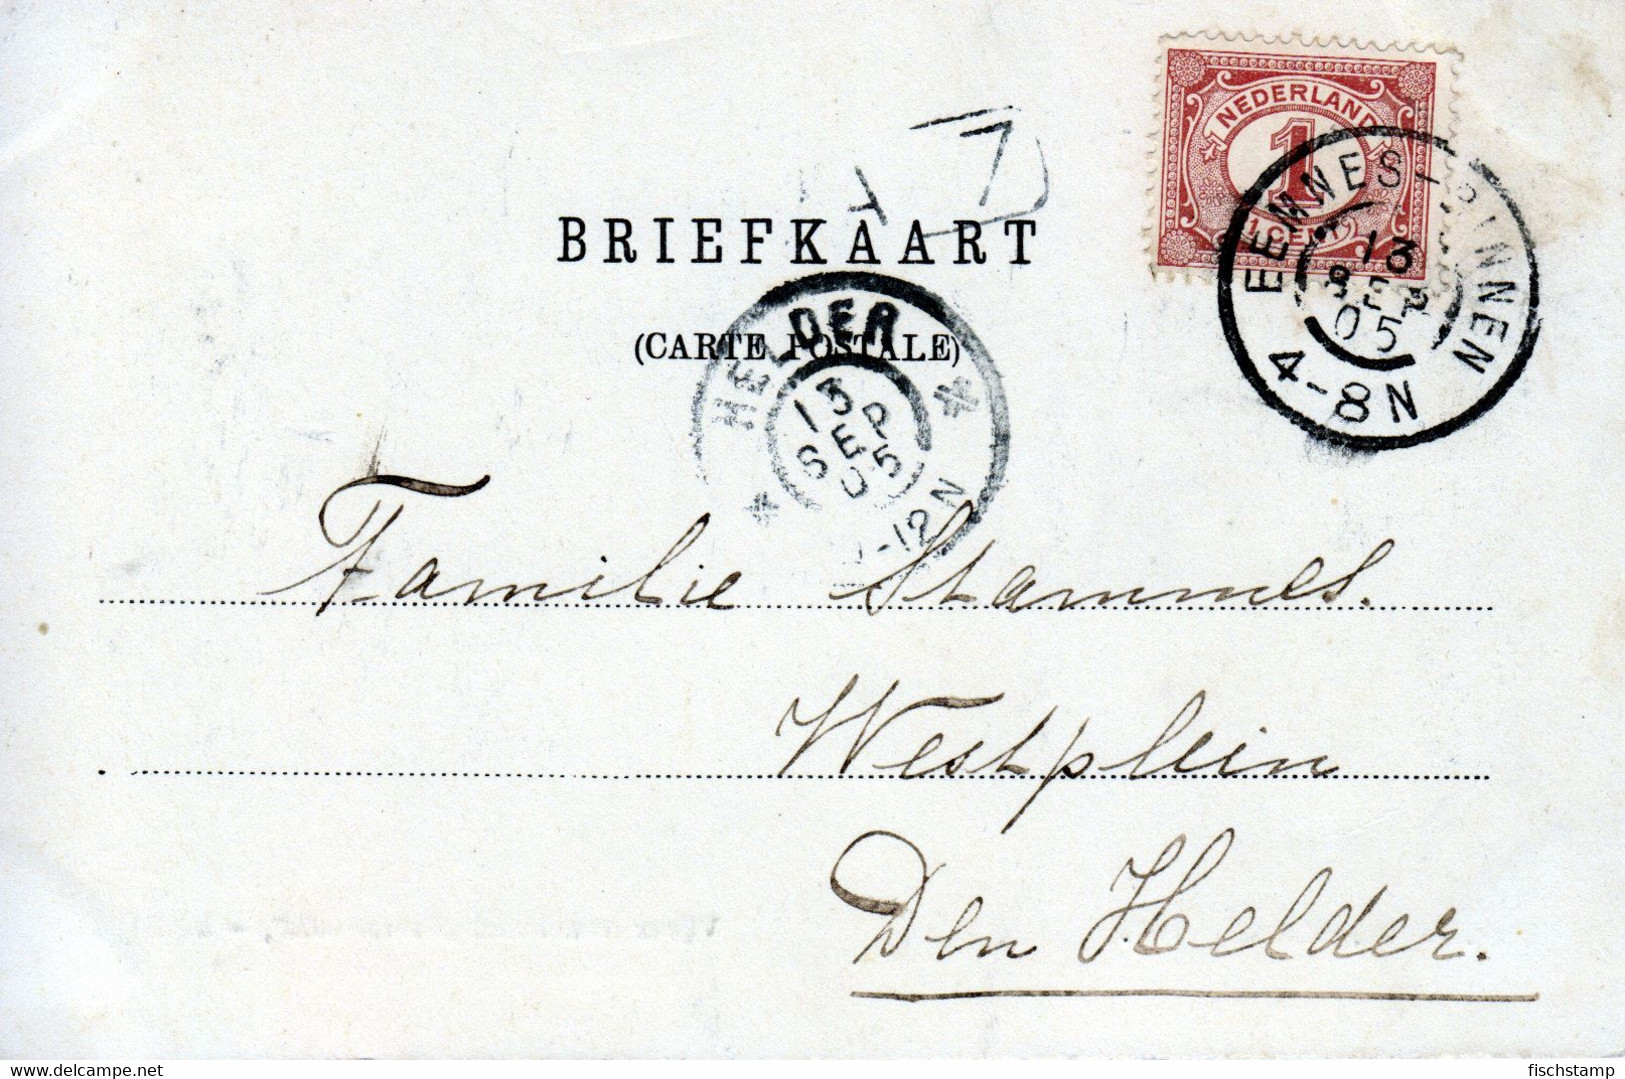 NEDERLAND
1
1 CENT
EEMNES-BINNEN
13
SEP
05
4-8N
BRIEFKAART
(CARTE POSTALE)
HELDER
13
SEP
05
-12N
Familie Stammes.
Westplein
Den Helder.
fischstamp